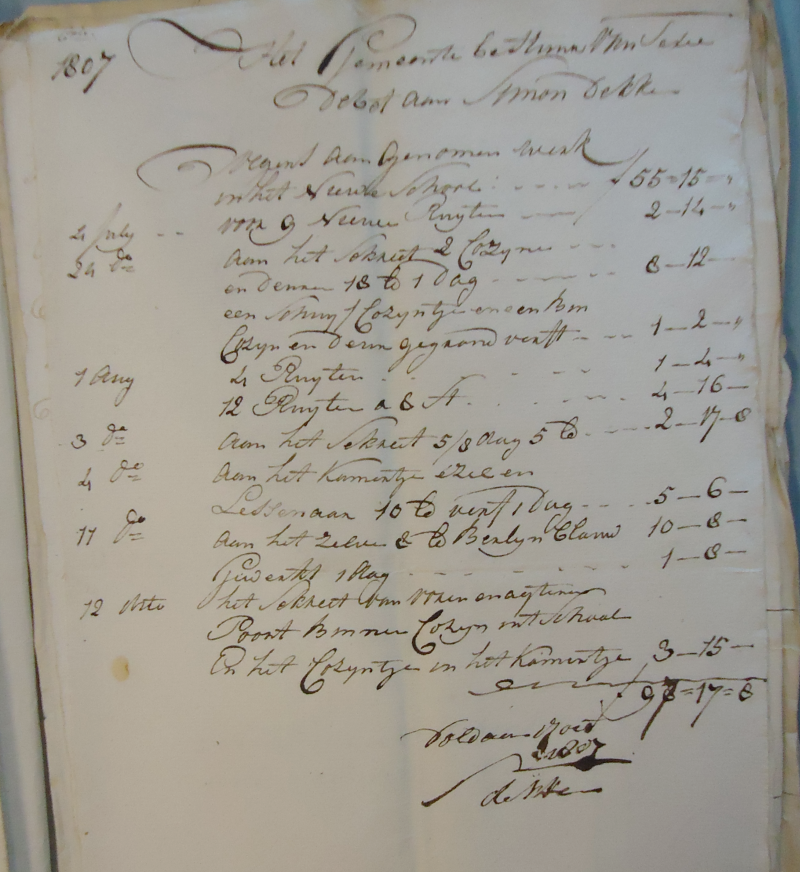 1807 Het Gemeente bestuur van
Debet aan Simon Dekker
Volgens aangenomen werk
in het Nieuwe School f 55-15-"
4 July voor 9 Nieuwe Ruyten 2-14-"
29 do aan het Sekreet 2 Cozyne
en deuren 18 lb 1 Dag 8-12-
een Schuyf Cozyntje en een bin
Cozyn en deur gegrond verft 1-2-"
1 Aug 4 Ruyten 1-4-"
12 Ruyten a 8 St 4-16-
3 do aan het Sekreet 5/8 dag 5 lb 2-17-8
4 do aan het Kamertje en
Lessenaar 10 lb verf 1 Dag 5-6-
11 do aan het zelve 8 lb Berlyn Blauw 10-8-
Gewerkt 1 dag 1-8-
12 dito het Sekreet van voren en agteren
Poort Binne Cozyn int School
En het Cozyntje in het Kamertje 3-15-
f 97=17=8
Voldaan 17 oct
1807
S Dekker